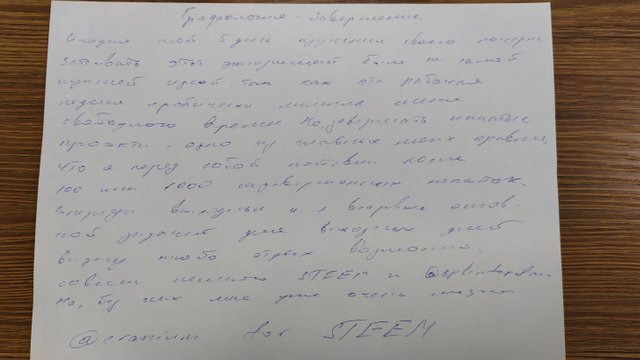 Графология - Завершение
Сегодня мой 5 день изучения своего почерка
Затевать этот эксперимент было не самой
лучшей идеей, так как эта рабочая
неделя практически лишила меня
свободного времени. Но, завершать начатые
проекты - одно из главных моих правил,
что я перед собой поставил после
100 или 1000 незавершенных попыток.
Впереди выходные и я впервые
задачей для выходных дней
вижу любо отдых
совсем немного STEEM и
Но, без них мне уже очень
@cranium for STEEM